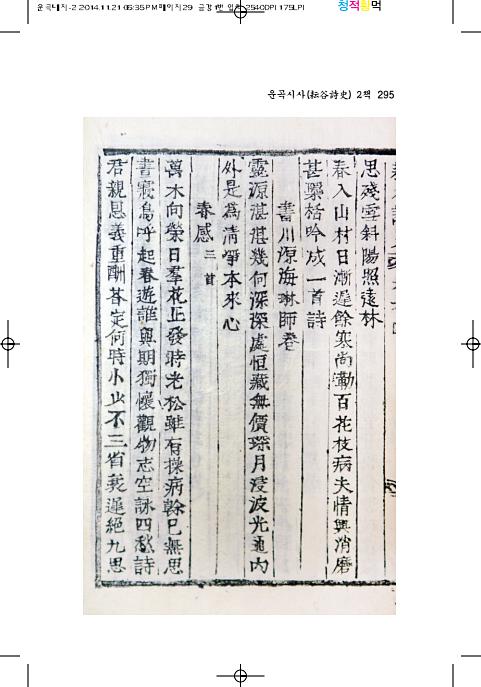 운곡대지-2 2014.11.21 05:35 PM 페이지29
2540DPI 175LPI
청적황먹
운곡시사(耘谷詩史) 2책 295
思殘雪斜陽照遠林
春入山村日漸遲餘寒尚勒百花枝病夫情興消磨
甚聚枯吟成一首詩
書川源海琳師卷
靈源湛湛幾何深深處恒藏無價琛月浸波光通內
外是爲清淨本來心
春感三首
萬木向榮日羣花正發時老松雖有操病幹已無思
晝寢鳥呼起春遊誰與期獨懷觀物志空詠四愁詩
君親恩義重酬荅定何時小少不三省衰遲絕九思